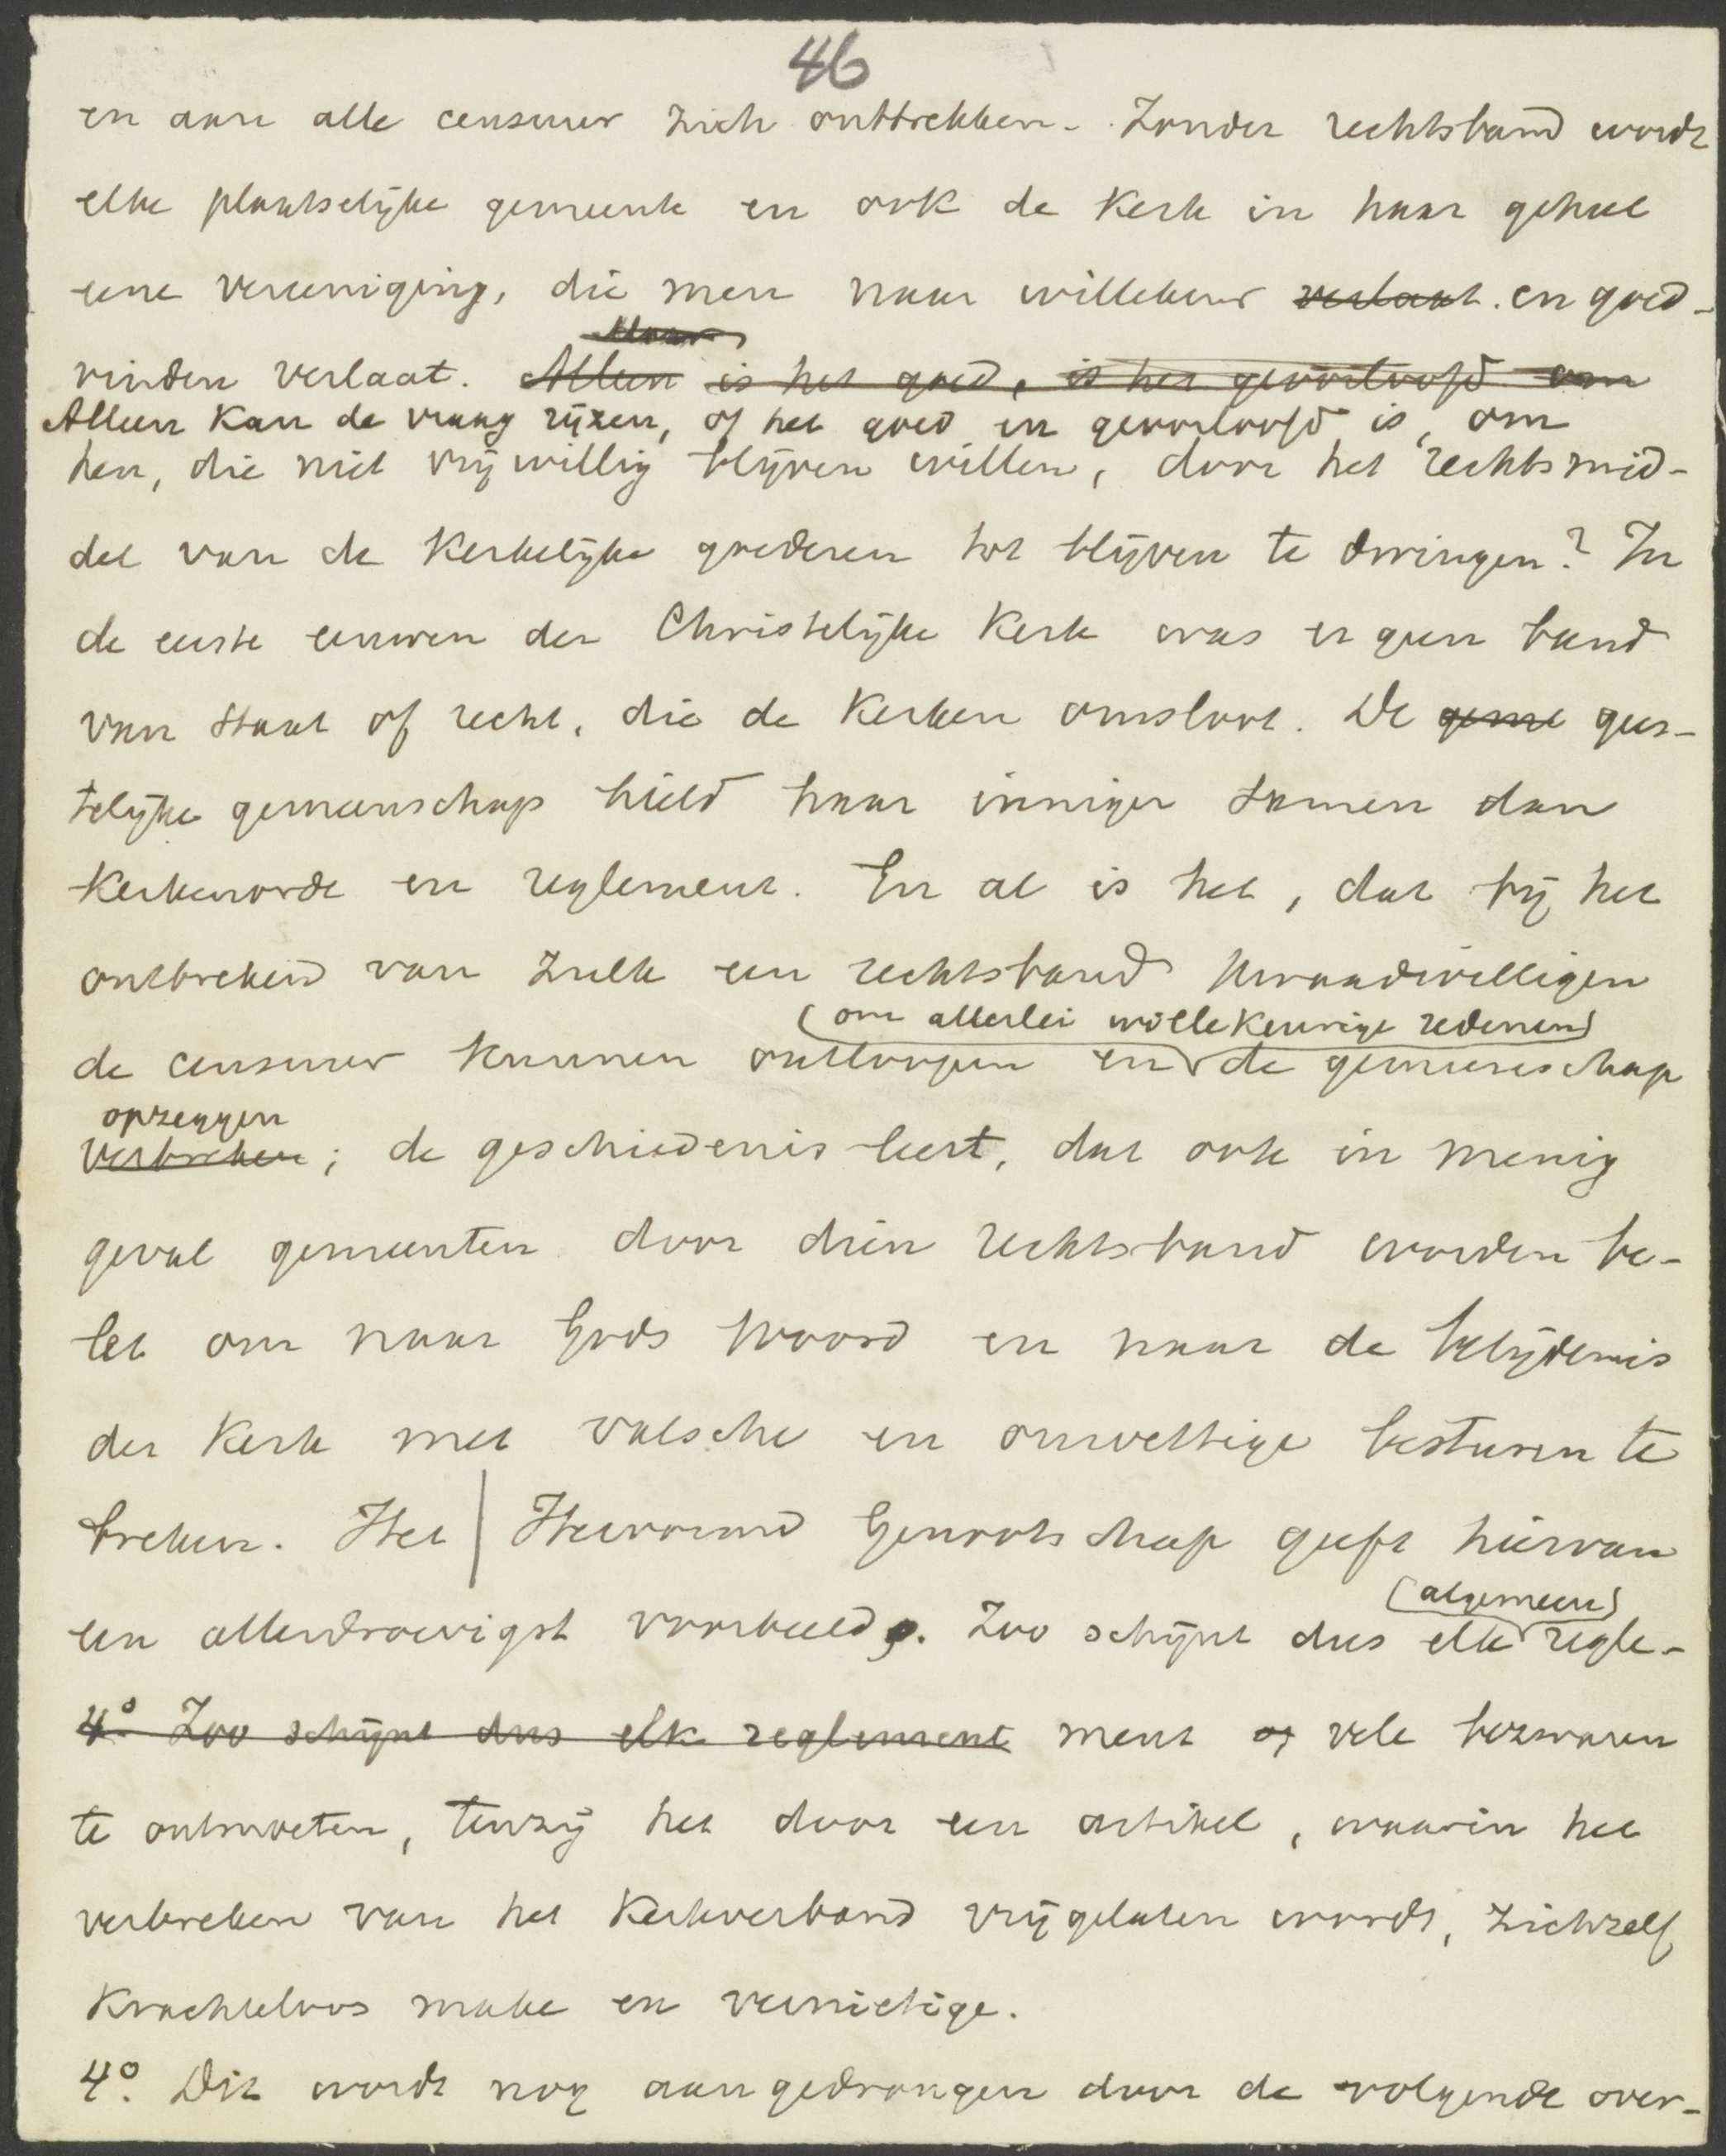 46
en aan alle censuur zich onttrekken. Zonder rechtsband wordt
elke plaatselijke gemeente en ook de Kerk in haar geheel
eene vereeniging, die men naar willekeur verlaat. en goed-
Maar
vinden verlaat. Alleen is het goed, is het geoorloofd om
Alleen kan de vraag rijzen, of het goed en geoorloofd is, om
hen, die niet vrijwillig blijven willen, door het rechtsmid-
del van de Kerkelijke goederen tot blijven te dwingen? In
de eerste eeuwen der Christelijke Kerk was er geen band
van Staat of recht, die de Kerken omsloot. De geme gees-
telijke gemeenschap hield haar inniger samen dan
Kerkenorde en reglement. En al is het, dat bij het
ontbrekend van zulk een rechtsband kwaadwilligen
om allerlei willekeurige redenen
de censuur kunnen ontloopen en de gemeenschap
opzeggen
verbreken; de geschiedenis leert, dat ook in menig
geval gemeenten door dien rechtsband worden be-
let om naar Gods Woord en naar de belijdenis
der Kerk met valsche en onwettige besturen te
breken. Het | Hervormd Genootschap geeft hiervan
algemeen
een allerdroevigst voorbeeld. Zoo schijnt dus elk regle-
4° Zoo schijnt dus elk reglement ment op vele bezwaren
te ontmoeten, tenzij het door een artikel, waarin het
verbreken van het Kerkverband vrijgelaten wordt, zichzelf
Krachteloos make en vernietige.
4°. Dit wordt nog aangedrongen door de volgende over-